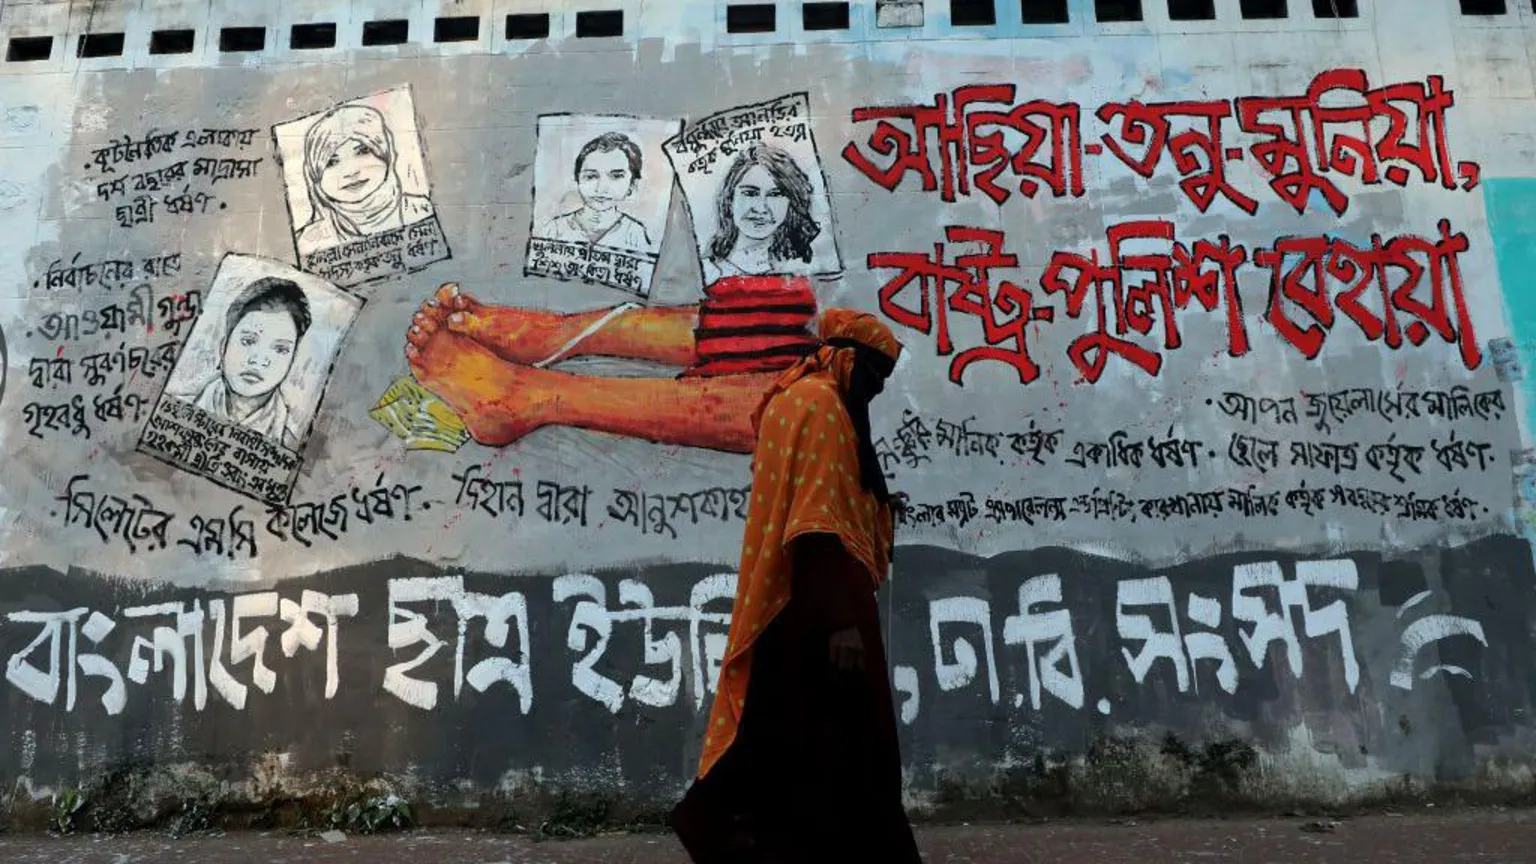 আছিয়া-তনু-মুনিয়া,
রাষ্ট্র-পুলিশ বেহায়া
কূটনৈতিক এলাকায়
দশ বছরের মাদ্রাসা
ছাত্রী ধর্ষণ.
নির্বাচনের রাতে
আওয়ামী গুন্ডা
দ্বারা সুবর্ণচরের
গৃহবধূ ধর্ষণ.
বসুন্ধরার আনভির
কর্তৃক মুনিয়া হত্যা
দ্বারা
ধর্ষণ
কর্তৃক তনু ধর্ষণ
সিলেটের এমসি কলেজে ধর্ষণ.
দিহান দ্বারা আনুশকা
মালিক কর্তৃক একাধিক ধর্ষণ.
আপন জুয়েলার্সের মালিকের
ছেলে সাফাত কর্তৃক ধর্ষণ.
কারখানায় মালিক কর্তৃক শ্রমিক ধর্ষণ.
বাংলাদেশ ছাত্র ইউনি , ঢা.বি. সংসদ